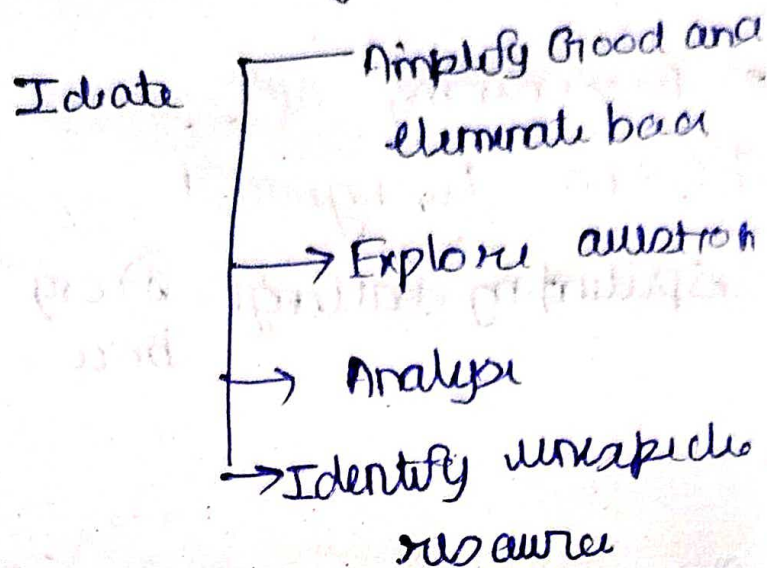 Ideate
Amplify Good and
eliminate bad
Explore question
Analyse
Identify unexpected
resource